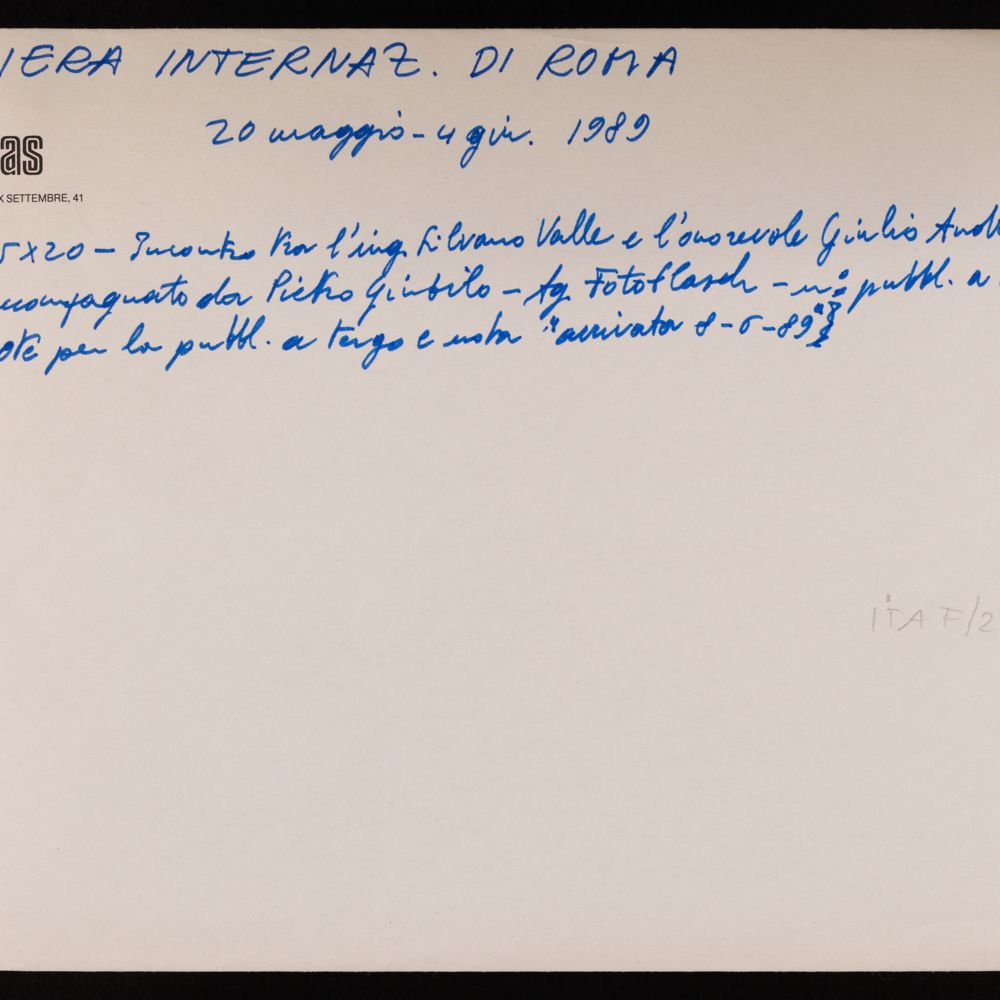 IERA INTERNAZ. DI ROMA
20 maggio - 4 giu. 1989
as
X SETTEMBRE, 41
5x20 - Incontro tra l'ing. Silvano Valle e l'onorevole Giulio Andr
ccompagnato da Pietro Giubilo - Ag. Fotoflasch - n° pubbl. a
ote per la pubbl. a tergo e nota "arrivata 8-6-89"
ITA F/2